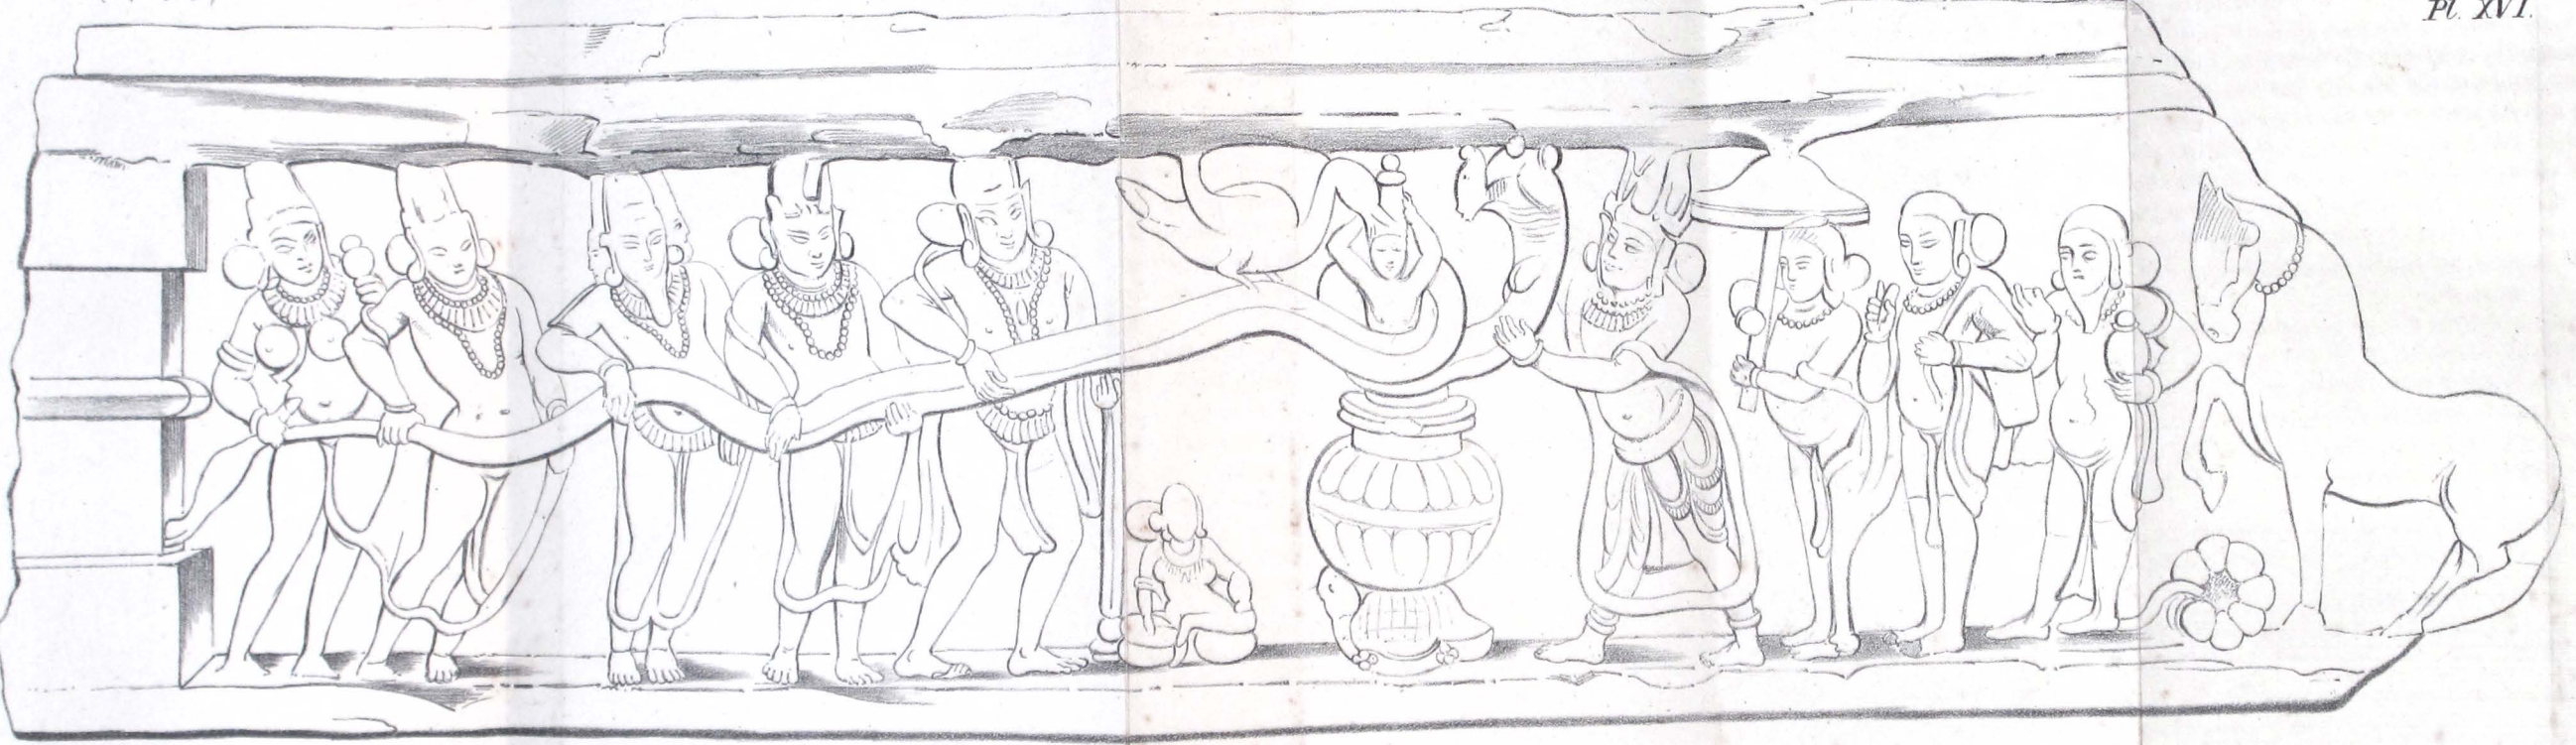 Pl. XVI.